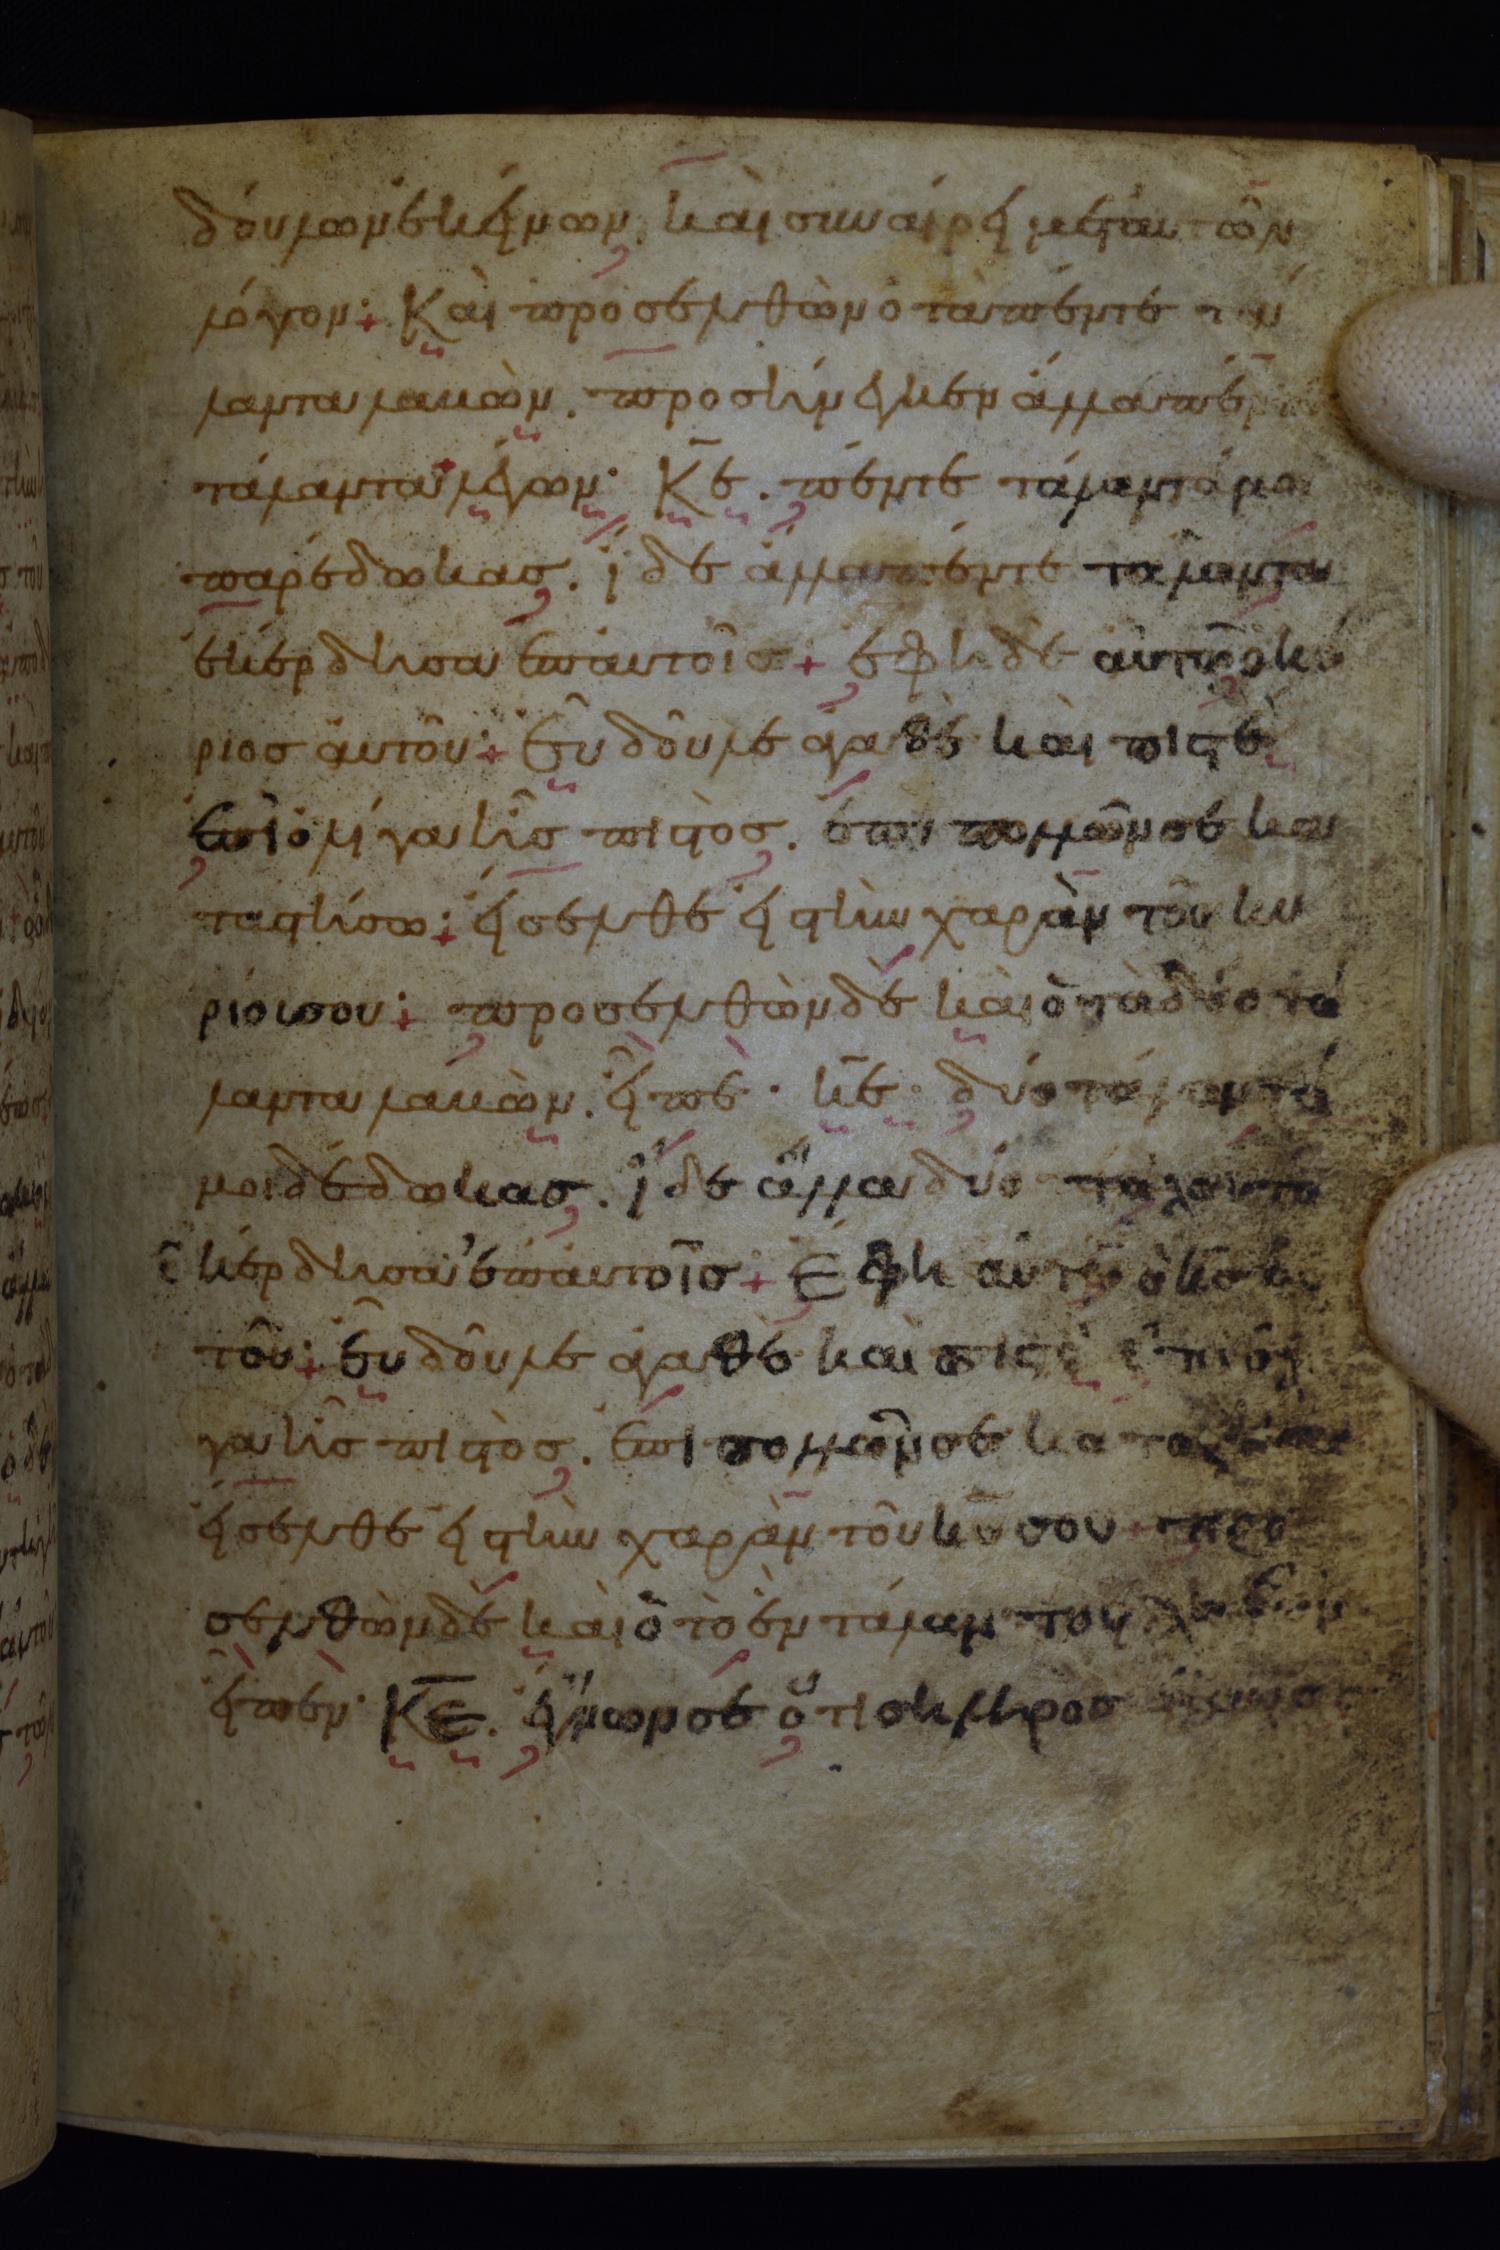 δούλων ἐκείνων, καὶ συναίρει μετ' αὐτῶν
λόγον· Καὶ προσελθὼν ὁ τὰ πέντε τα
λαντα λαβὼν. προσήνεγκεν ἄλλα πέντε
τάλαντα λέγων· Κε. πέντε τάλαντά μοι
παρέδωκας. ἴδε ἄλλα πέντε τάλαντα
ἐκέρδησα ἐπ' αὐτοῖς· ἔφη δὲ αὐτῶ ὁ κύ
ριος αὐτοῦ· Εὖ δοῦλε ἀγαθὲ καὶ πιστὲ
ἐπὶ ὀλίγα ἦς πιστὸς. ἐπὶ πολλῶν σε κα
ταστήσω· εἴσελθε εἰς τὴν χαρὰν τοῦ κυ
ρίου σου· προσελθὼν δὲ καὶ ὁ τὰ δύο τά
λαντα λαβὼν. εἶπε· κε· δύο τάλαντά
μοι δέδωκας. ἴδε ἄλλα δύο τάλαντα
ἐκέρδησα ἐπ' αὐτοῖς· Εφη αὐτῶ ὁ κς αὐ
τοῦ· εὖ δοῦλε ἀγαθὲ καὶ πιστὲ ἐπὶ ὀλί
γα ἦς πιστὸς. ἐπὶ πολλῶν σε καταστήσω
εἴσελθε εἰς τὴν χαρὰν τοῦ κυ σου· προ
σελθὼν δὲ καὶ ὁ τὸ ἓν τάλαντον λαβὼν
εἶπεν· Κε. ἔγνων σε ὅτι σκληρὸς